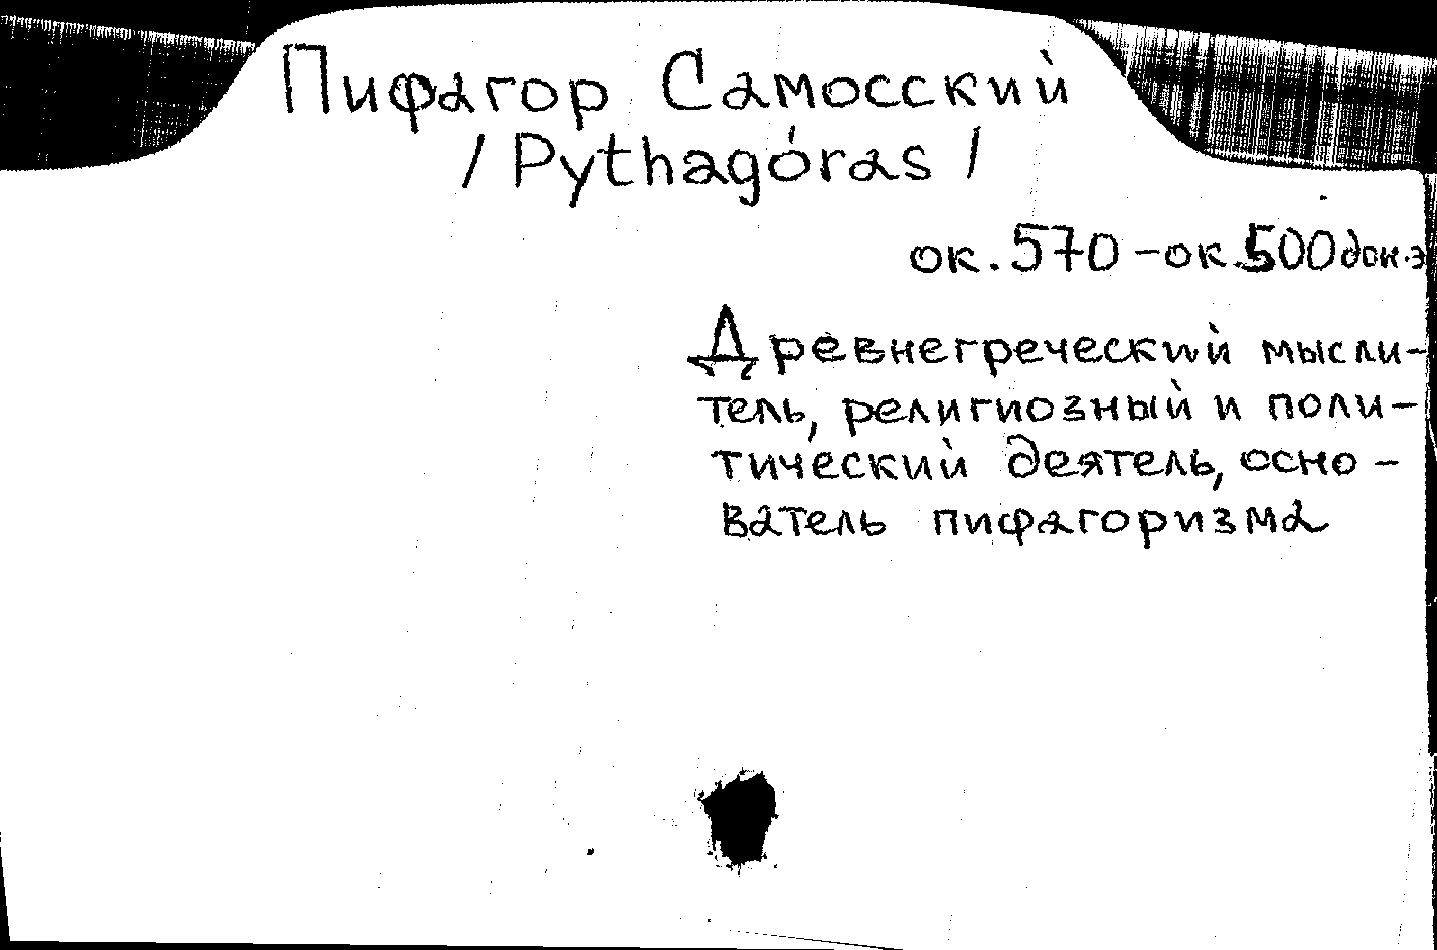 Пифагор Самосский
/ Pythagóras /
ок. 570 – ок. 500 до н.э
Древнегреческий мысли-
тель, религиозный и поли-
тический деятель, осно-
ватель пифагоризма